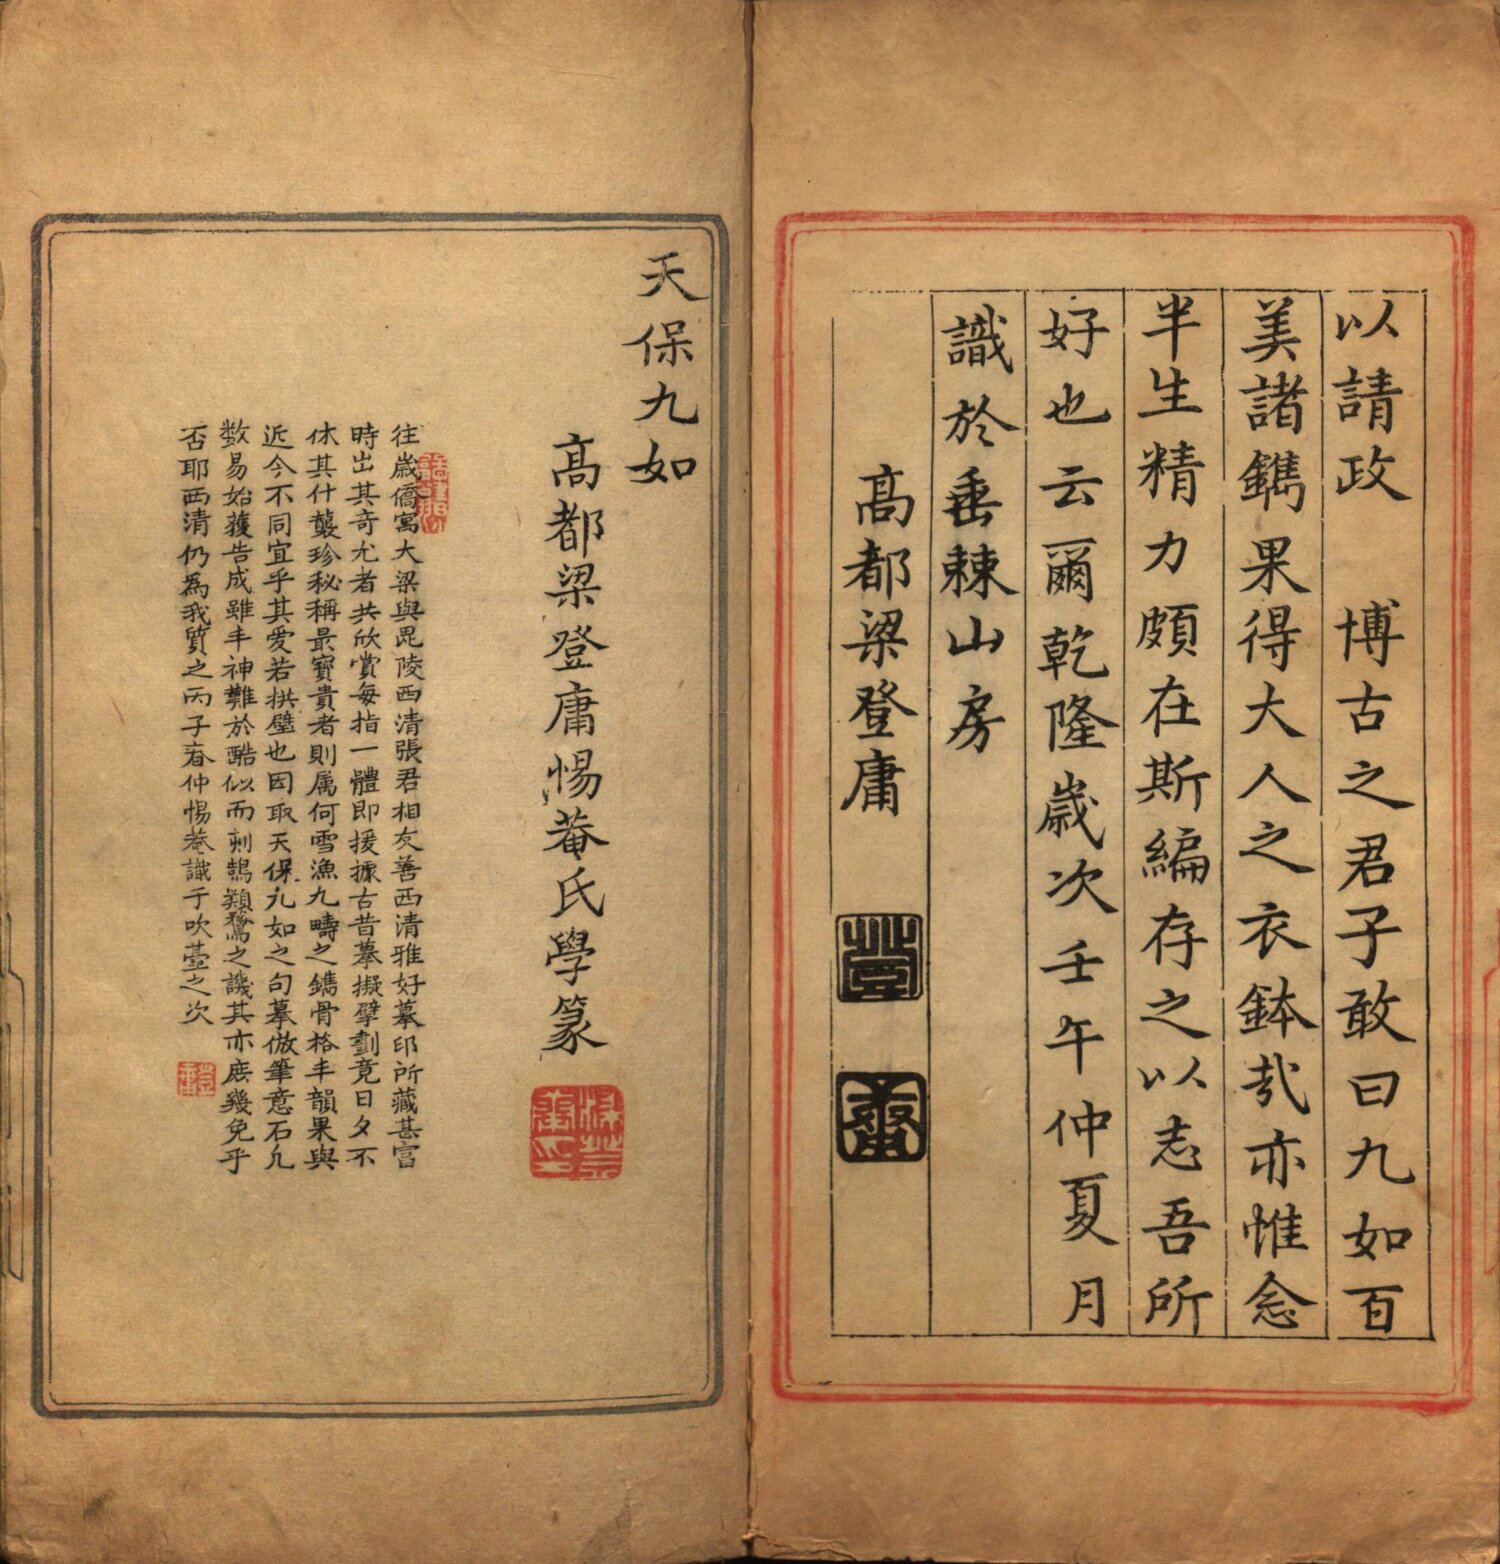 以請政　博古之君子敢曰九如百
美諸鐫果得大人之衣鉢哉亦惟念
半生精力頗在斯編存之以志吾所
好也云爾乾隆歲次壬午仲夏月
識於垂棘山房
高都梁登庸
天保九如
高都梁登庸惕菴氏學篆
往歲僑寓大梁與毘陵西清張君相友善西清雅好摹印所藏甚富
時出其奇尤者共欣賞每指一體即援據古昔摹擬擘劃竟日夕不
休其什襲珍秘稱最寶貴者則属何雪漁九疇之鐫骨格丰韻果與
近今不同宜乎其愛若拱璧也因取天保九如之句摹倣筆意石凡
数易始獲告成雖丰神難於酷似而刻鵠類鶩之譏其亦庶幾免乎
否耶西清仍為我質之丙子春仲惕菴識于吹臺之次